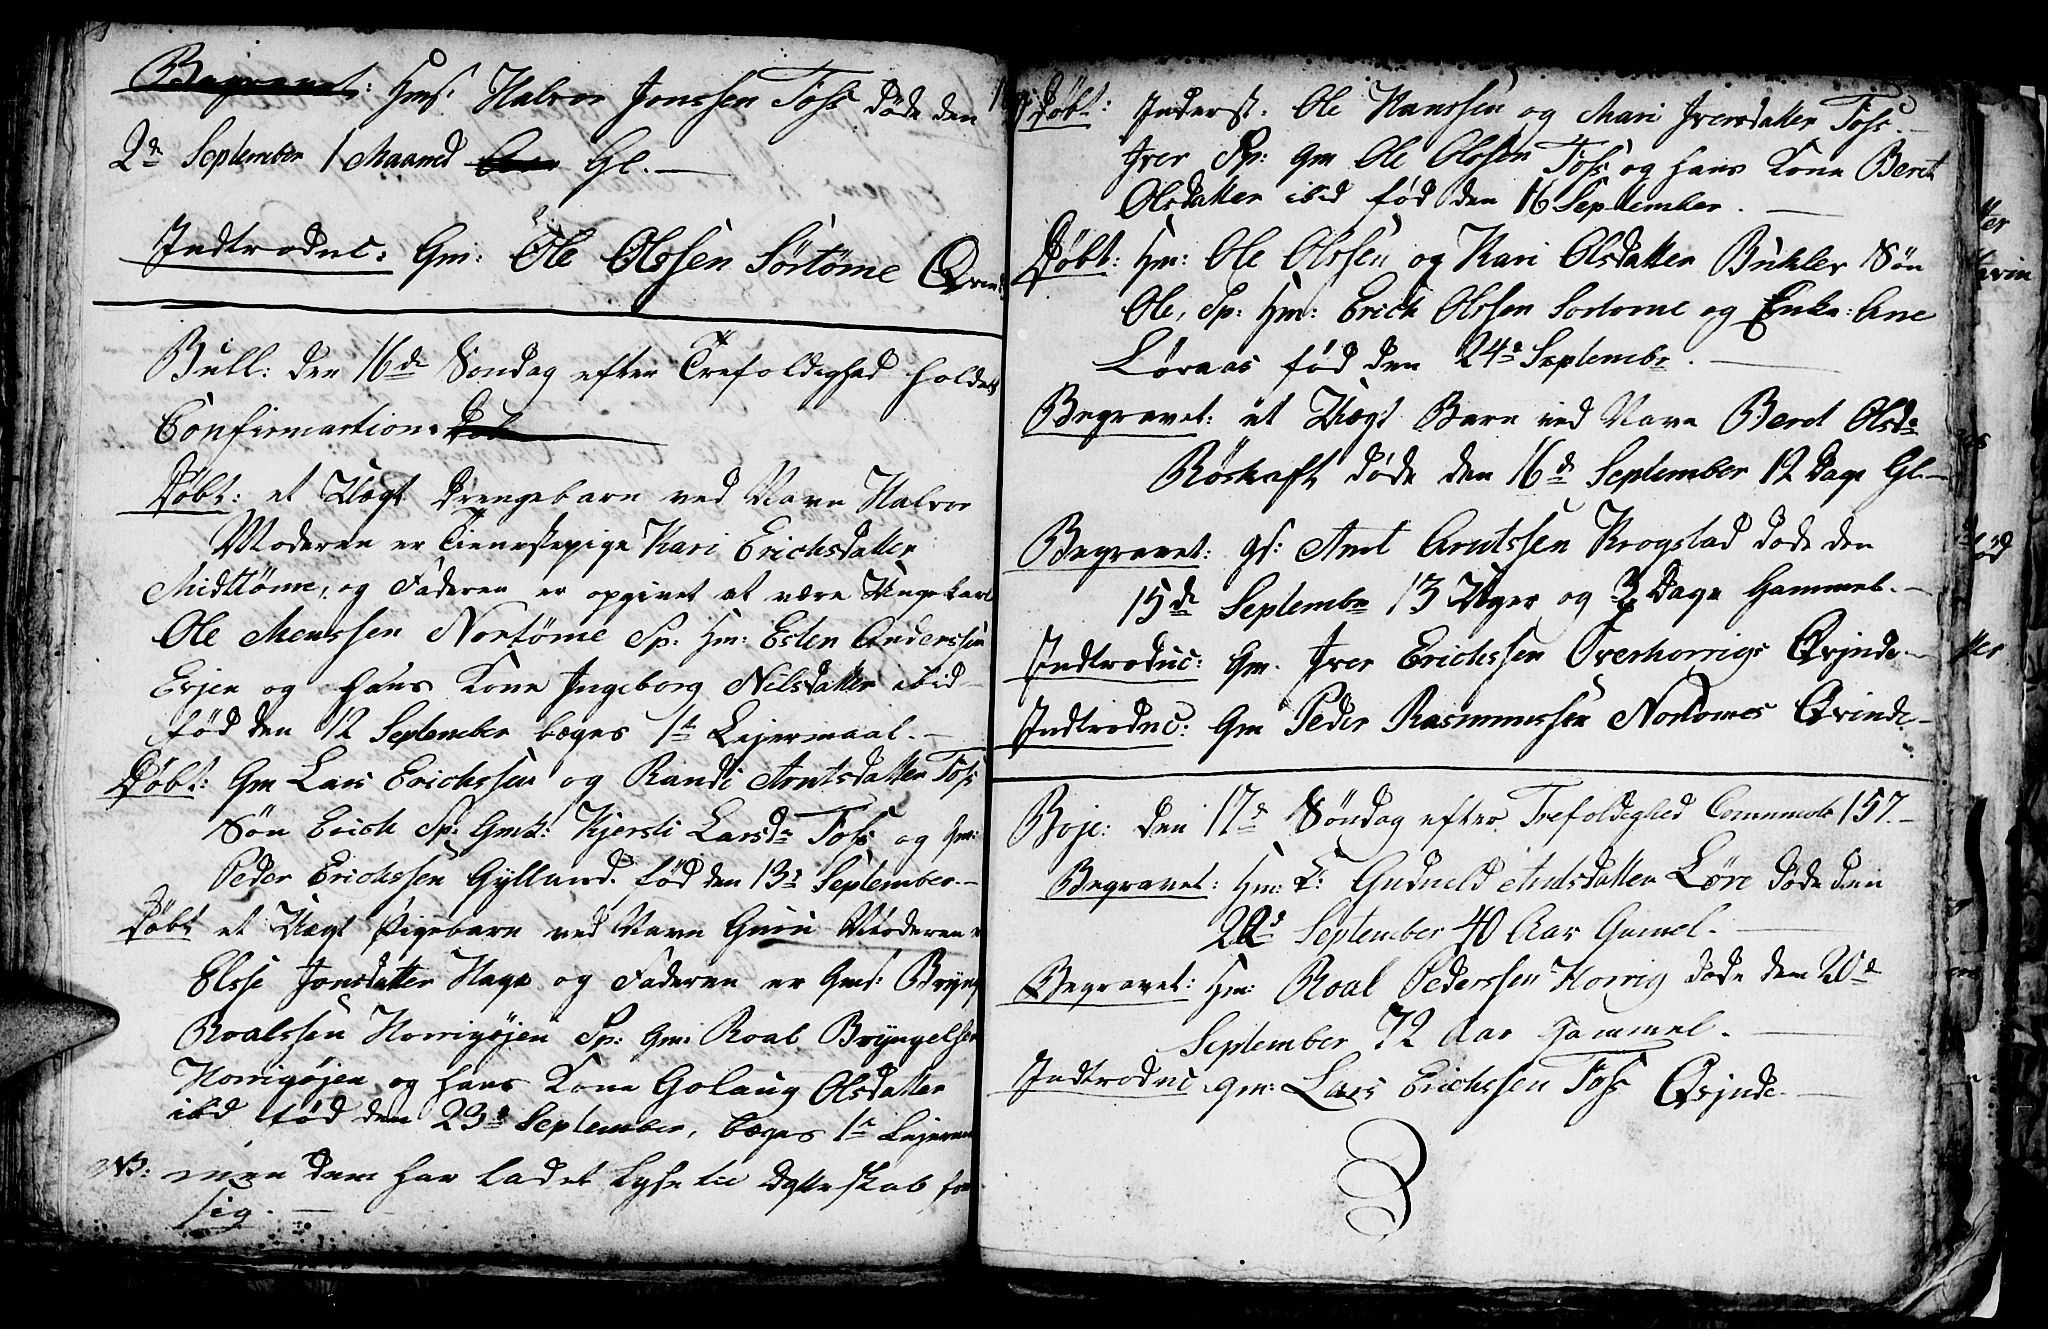 Begravet: Hms: Halvor Jonssen Foss døde den
2de September 1 Maaned Gl.
Introduc: Gm: Ole Olssen Sørtømme Qvin
Bull: den 16de Søndag efter Trefoldighed holdet
Confirmation.
Døbt: et Uægt Drengebarn ved Navn Halvor
Moderen er Tieneste pige Kari Erichsdatter
Midttømme, og Faderen er opgivet at være Ungekarl
Ole Monssen Nortømme Sp: Hm: Esten Anderssen
Evjen og hans Kone Ingeborg Nilsdatter ibid
født den 12 September begges 1te Lejermaal.
Døbt: Gm Lars Erichssen og Randi Arntsdatter Foss
Søn Erich Sp: Gmk: Kjersti Larsdr Foss og Gm:
Peder Erichssen Gylland. fød den 13de September.
Døbt et Uægt Pigebarn ved Navn Guru Moderen
Elsse Jonsdatter Hage og Faderen er Gms: Bryng
Roalssen Horrigøjen Sp: Gm: Roal Bryngelsen
Horrigøjen og hans Kone Golaug Olsdatter
ibid fød den 23de September, begges 1te Lejerm
NB: men dem har ladet lyse til Ægteskab for
sig.
Døbt: Inderst: Ole Hanssen og Mari Iversdatter Foss.
Iver Sp: Gm Ole Olssen Foss og hans Kone Beret
Olsdatter ibid fød den 16 September.
Døbt: Hm: Ole Olssen og Kari Olsdatter Bukler Søn
Ole, Sp: Hm: Erich Olssen Sortome og Enke: Ane
Løraas fød den 24de Septembr.
Begravet: et Uægt Barn ved Navn Beret Olsdr
Røskaft døde den 16de September 12 Dage Gl.
Begravet: gs: Arnt Arntssen Krogstad døde den
15de Septembr 13 Uger og 3 Dage Gammel.
Introduc: Gm. Iver Erichssen Overhorrigs Qvinde.
Introduc: Gm Peder Rasmussen Nortomes Qvinde
Boje: den 17de Søndag efter Trefoldighed Communic 157.
Begravet: Hm: K: Gudneld Arntsdatter Løre døde den
20de September 40 Aar Gamel.
Begravet: Hm: Roal Pederssen Horrig døde den 20de
September 72 Aar Gammel.
Introduc. Gm: Lars Erichssen Foss Qvinde.